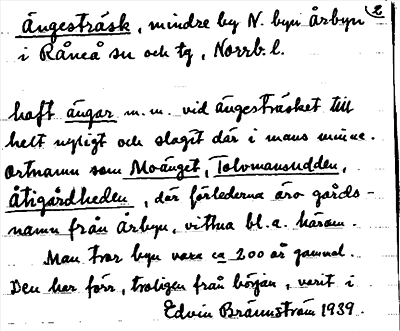 2
Ängesträsk, mindre by N. byn Årbyn
i Råneå sn och tg, Norrb. l.
haft ängar m. m. vid ängesträsket till
helt nyligt och slagit där i mans minne.
Ortnamn som Moänget, Tolvmansudden,
Åtigårdheden, där förlederna äro gårds-
namn från Årbyn, vittna bl. a. härom.
Man tror byn vara ca 200 år gammal.
Den har förr, troligen från början, varit i
Edvin Brännström 1939.